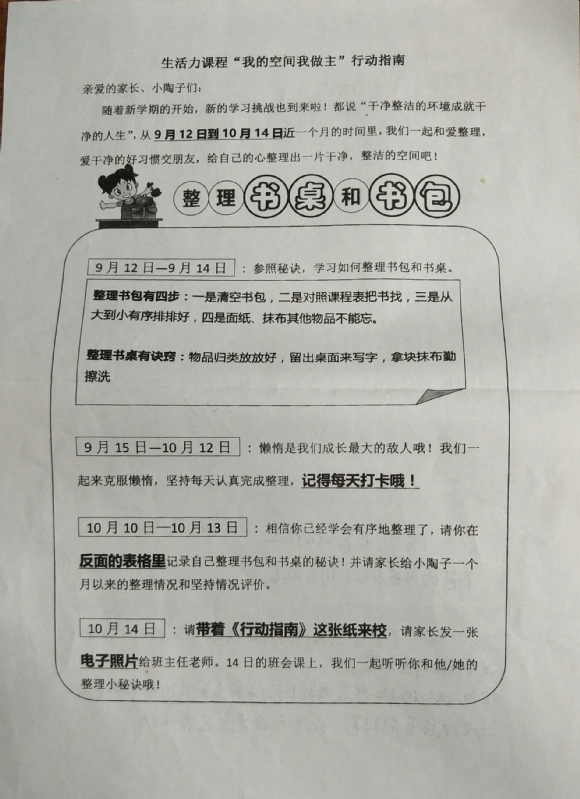 生活力课程“我的空间我做主”行动指南
亲爱的家长、小陶子们：
随着新学期的开始，新的学习挑战也到来啦！都说“干净整洁的环境成就干
净的人生”，从9月12日到10月14日近一个月的时间里，我们一起和爱整理，
爱干净的好习惯交朋友，给自己的心整理出一片干净，整洁的空间吧！
整理书桌和书包
9月12日—9月14日：参照秘诀，学习如何整理书包和书桌。
整理书包有四步：一是清空书包，二是对照课程表把书找，三是从
大到小有序排排好，四是面纸、抹布其他物品不能忘。
整理书桌有诀窍：物品归类放放好，留出桌面来写字，拿块抹布勤
擦洗
9月15日—10月12日：懒惰是我们成长最大的敌人哦！我们一
起来克服懒惰，坚持每天认真完成整理，记得每天打卡哦！
10月10日—10月13日：相信你已经学会有序地整理了，请你在
反面的表格里记录自己整理书包和书桌的秘诀！并请家长给小陶子一个
月以来的整理情况和坚持情况评价。
10月14日：请带着《行动指南》这张纸来校，请家长发一张
电子照片给班主任老师。14日的班会课上，我们一起听听你和他/她的
整理小秘诀哦！